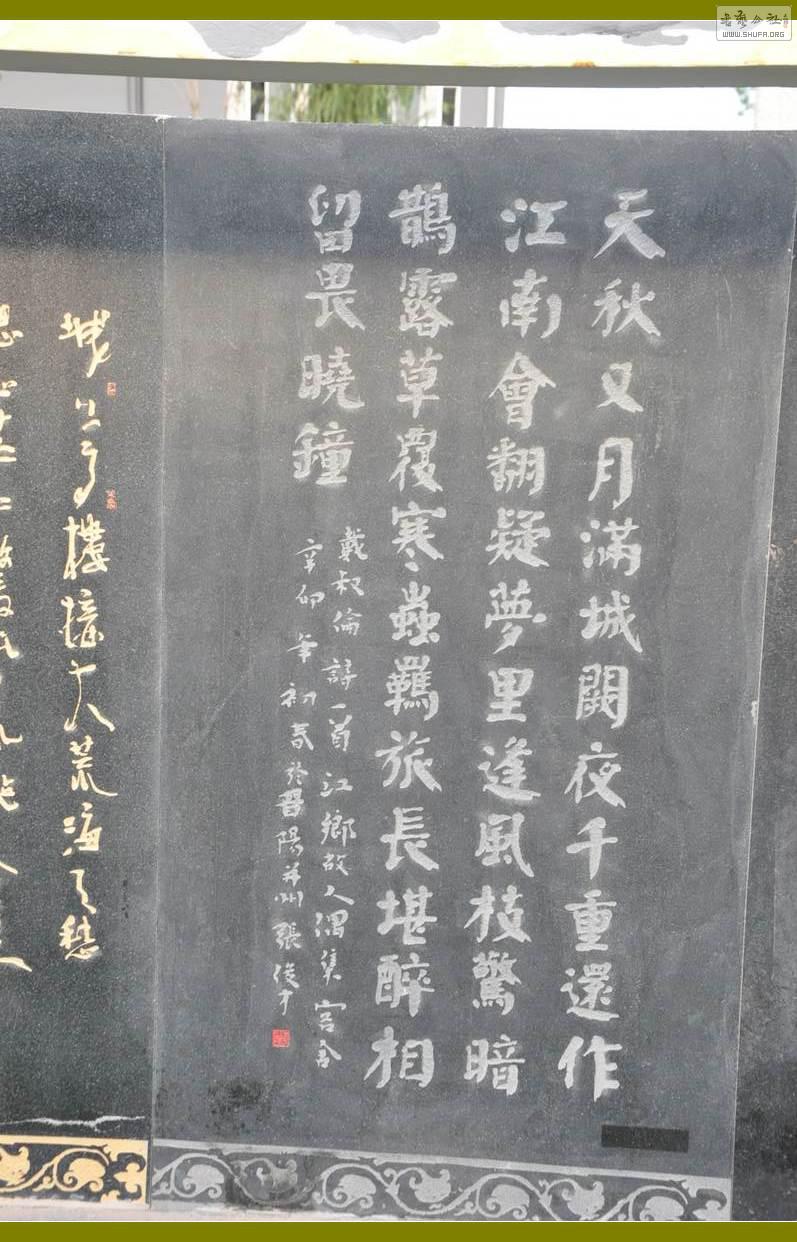 天秋又月滿城闕夜千重還作
江南會翻疑夢里逢風枝驚暗
鵲露草覆寒蟲羈旅長堪醉相
留畏曉鐘
戴叔倫詩一首江鄉故人偶集客舍
辛卯年初春於晉陽并州張俊才
城上高樓接大荒海天愁
书艺公社
WWW.SHUFA.ORG